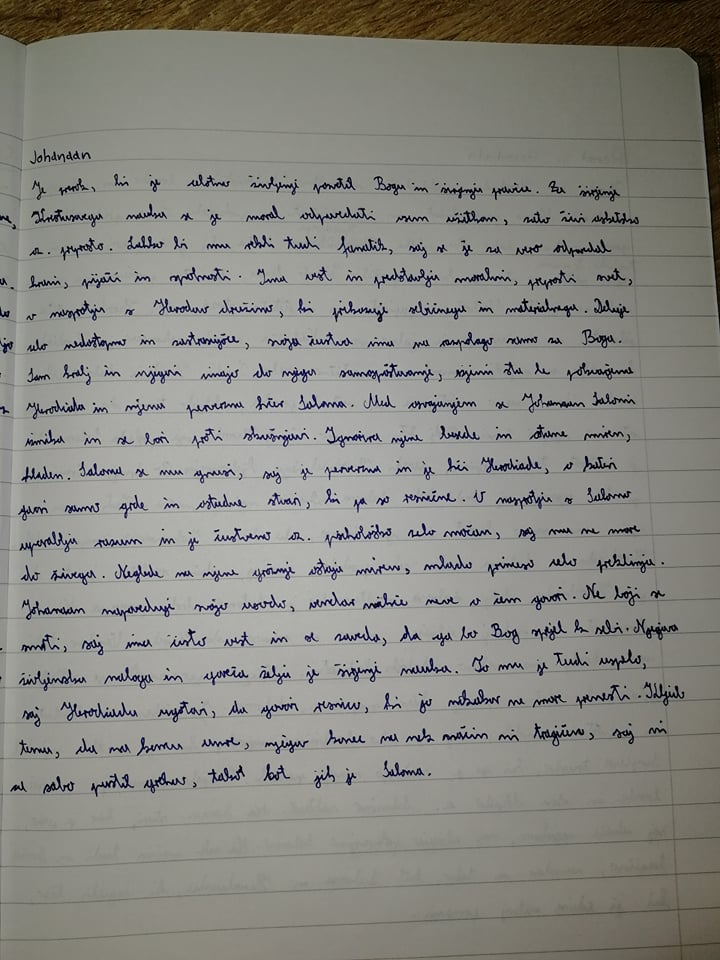 Johanaan
Je prerok, ki je celotno življenje posvetil Bogu in širjenju pravice. Za širjenje
Kristusovega nauka se je moral odpovedati vsem užitkom, zato živi asketsko
oz. preprosto. Lahko bi mu rekli tudi fanatik, saj se je za vero odpovedal
hrani, pijači in spolnosti. Ima vest in predstavlja moralni, preprosti svet,
v nasprotju s Herodovo družino, ki prikazuje sebičnega in materialnega. Deluje
zelo nedostopno in zastrašujoče, svoja čustva ima na razpolago samo za Boga.
Sam kralj in njegovi imajo do njega samospoštovanje, izjemi sta le pokvarjena
Herodiada in njena perverzna hčer Saloma. Med osvajanjem se Johanaan Salomi
izmika in se bori proti skušnjavi. Ignorira njene besede in ostane miren,
hladen. Saloma se mu gnusi, saj je perverzna in je hči Herodiade, o kateri
govori samo grde in ostudne stvari, ki pa so resnične. V nasprotju s Salomo
uporablja razum in je čustveno oz. psihološko zelo močan, saj mu ne more
do živega. Neglede na njene grožnje ostaja miren, mlado princeso celo preklinja.
Johanaan napoveduje svojo usodo, vendar nihče neve o čem govori. Ne boji se
smrti, saj ima čisto vest in se zaveda, da ga bo Bog sprejel k sebi. Njegova
življenska naloga in goreča želja je širjenje nauka. To mu je tudi uspelo,
saj Herodiadu ugotovi, da govori resnico, ki jo nikakor ne more prenesti. Kljub
temu, da na koncu umre, njegov konec na nek način ni tragičen, saj ni
za sabo pustil grehov, takot kot jih je Saloma.